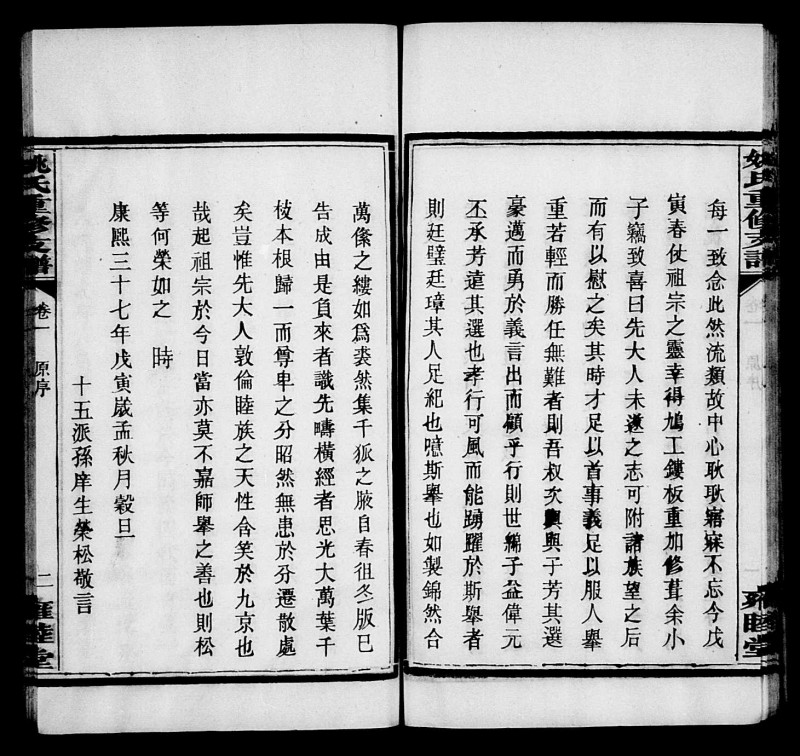 姚氏重修支譜
卷一
原序
雍睦堂
每一致念此然流類故中心耿耿寤寐不忘今戊
寅春仗祖宗之靈幸得鳩工鏤板重加修葺余小
子竊致喜曰先大人未遂之志可附諸族望之后
而有以慰之矣其時才足以首事義足以服人舉
重若輕而勝任無難者則吾叔次輿與于芳其選
豪邁而勇於義言出而顧乎行則世綿子益偉元
丕承芳遠其選也孝行可風而能踴躍於斯舉者
則廷璧廷璋其人足紀也噫斯舉也如製錦然合
萬絛之縷如爲裘然集千狐之腋自春徂冬版巳
告成由是負來者識先疇橫經者思光大萬葉千
枝本根歸一而尊卑之分昭然無患於分遷散處
矣豈惟先大人敦倫睦族之天性含笑於九京也
哉起祖宗於今日當亦莫不嘉師舉之善也則松
等何榮如之 時
康熙三十七年戊寅歲孟秋月穀旦
十五派孫庠生榮松敬言
姚氏重修支譜
卷一
原序
二
雍睦堂